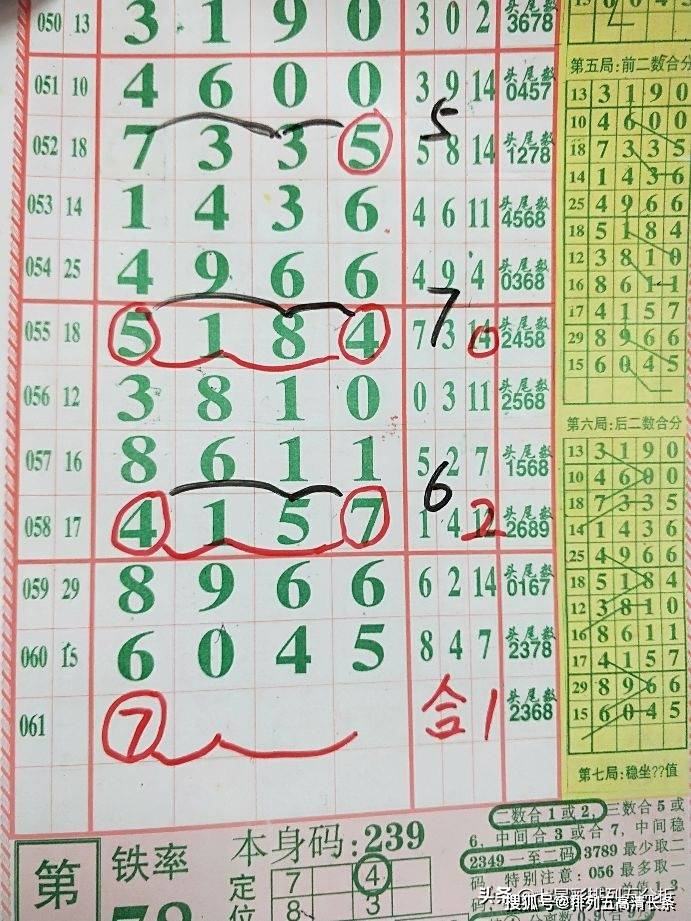 050 13 3 1 9 0 3 0 2 3678
051 10 4 6 0 0 3 9 14 头尾数 0457
5
052 18 7 3 3 5 5 8 14 头尾数 1278
053 14 1 4 3 6 4 6 11 头尾数 4568
054 25 4 9 6 6 4 9 4 头尾数 0368
7
055 18 5 1 8 4 7 3 14 头尾数 2458
056 12 3 8 1 0 0 3 11 头尾数 2568
057 16 8 6 1 1 5 2 7 头尾数 1568
6
058 17 4 1 5 7 1 4 2 头尾数 2689
059 29 8 9 6 6 6 2 14 头尾数 0167
060 15 6 0 4 5 8 4 7 头尾数 2378
061 7 合1 头尾数 2368
第五局:前二数合分
13 3 1 9 0
10 4 6 0 0
18 7 3 3 5
14 1 4 3 6
25 4 9 6 6
18 5 1 8 4
12 3 8 1 0
16 8 6 1 1
17 4 1 5 7
29 8 9 6 6
15 6 0 4 5
第六局:后二数合分
13 3 1 9 0
10 4 6 0 0
18 7 3 3 5
14 1 4 3 6
25 4 9 6 6
18 5 1 8 4
12 3 8 1 0
16 8 6 1 1
17 4 1 5 7
29 8 9 6 6
15 6 0 4 5
第七局:稳坐??值
第
铁率
本身码:239
定位
7 4
8 3
二数合1或2,三数合5或
6,中间合3或合7,中间稳
2349一至二码,3789最少取二
码 特别注意:056最多取一
搜狐号@排列五高清长条